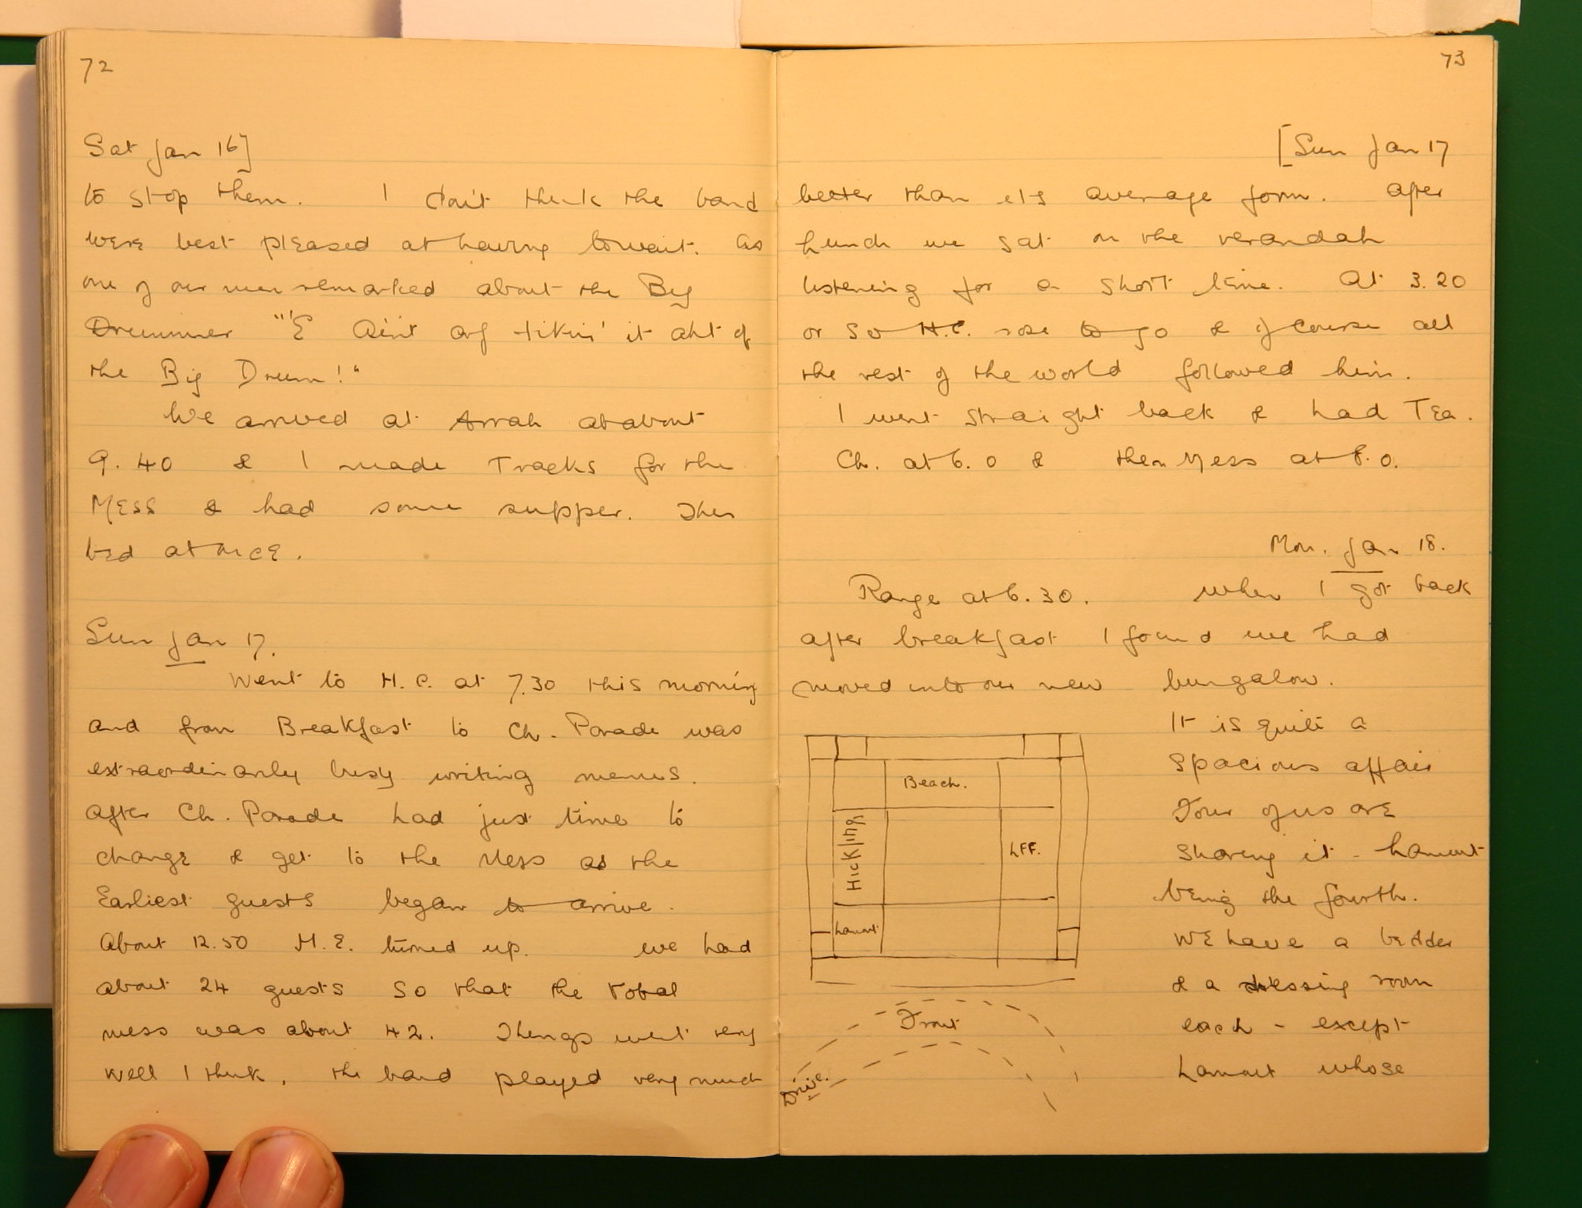 72
Sat Jan 16]
to stop them. I don't think the band
were best pleased at having to wait. As
one of our men remarked about the Big
Drummer "'E ain't arf tikin' it aht of
the Big Drum!"
We arrived at Arrah at about
9.40 & I made Tracks for the
Mess & had some supper. Then
bed at once.
Sun Jan 17.
Went to H.C. at 7.30 this morning
and from Breakfast to Ch. Parade was
extraordinarily busy writing menus.
After Ch. Parade had just time to
change & get to the Mess as the
Earliest guests began to arrive.
About 12.50 H.E. turned up. We had
about 24 guests so that the total
mess was about 42. Things went very
well I think, the band played very much
73
[Sun Jan 17
better than its average form. After
lunch we sat on the verandah
listening for a short time. At 3.20
or so H.E. rose to go & of course all
the rest of the world followed him.
I went straight back & had Tea.
Ch. at 6.0 & then Mess at 8.0.
Mon. Jan 18.
Range at 6.30. When I got back
after breakfast I found we had
moved into our new bungalow.
It is quite a
spacious affair
Four of us are
sharing it - Lamont
being the fourth.
We have a bedder
& a dressing room
each - except
Lamont whose
Beach.
Hickling
LFF.
Lamont
Front
Drive.